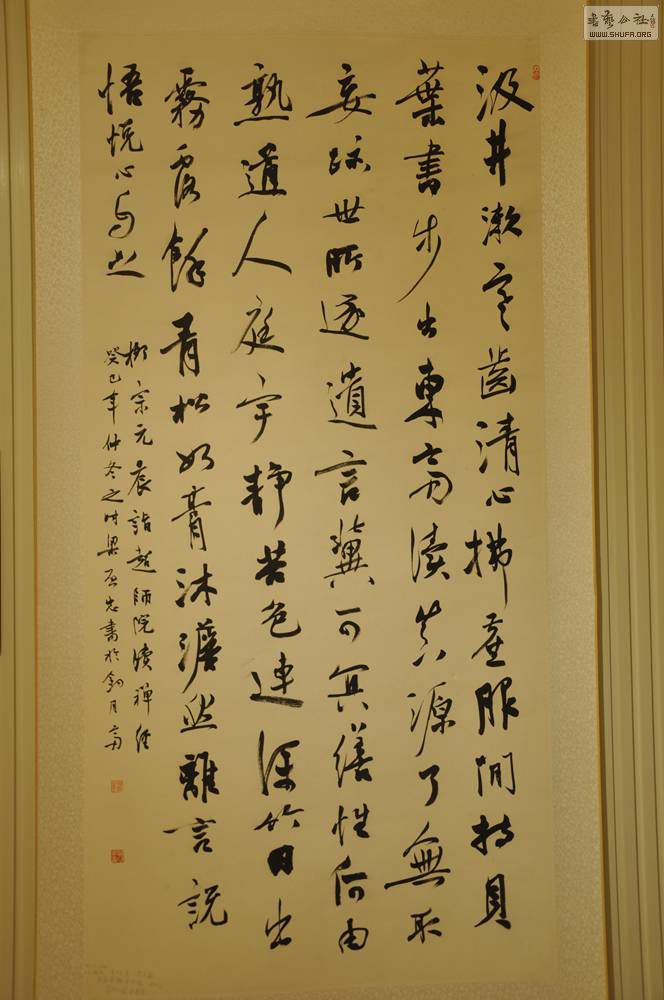 汲井漱寒齒清心拂塵服閒持貝
葉書步出東齋讀真源了無取
妄跡世所逐遺言冀可冥繕性何由
熟道人庭宇靜苔色連深竹日出
霧露餘青松如膏沐澹然離言説
悟悦心自足
柳宗元晨詣超師院讀禪經
癸巳年仲冬之時梁忠書於釣月齋
书艺公社
WWW.SHUFA.ORG